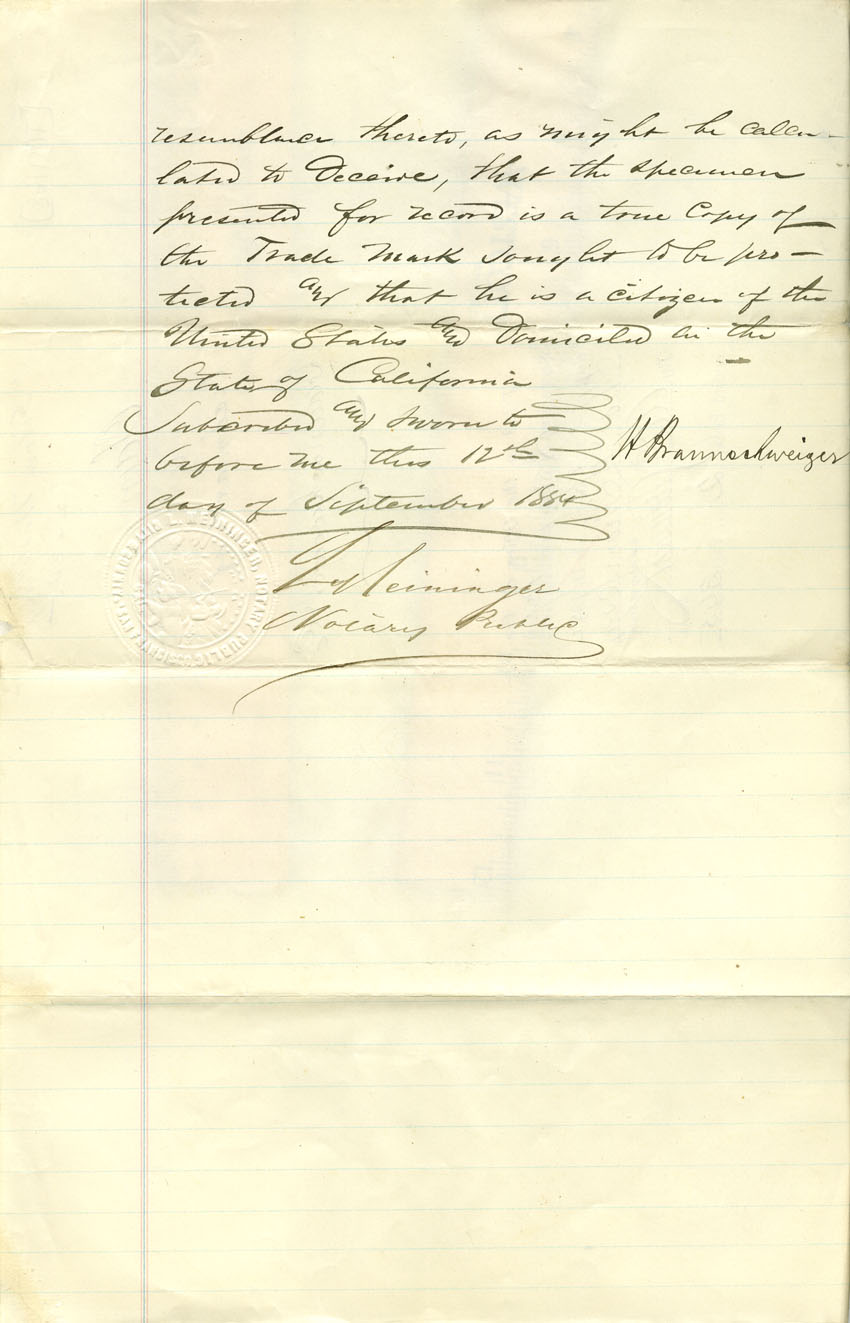 resemblance thereto, as might be calcu-
lated to Deceive, that the specimen
presented for record is a true Copy of
the Trade Mark sought to be pro-
tected and that he is a citizen of the
United States and Domiciled in the
State of California
Subscribed and sworn to
before me this 12th
day of September 1884
H Braunschweiger
L Meininger
Notary Public
MEININGER, NOTARY PUBLIC